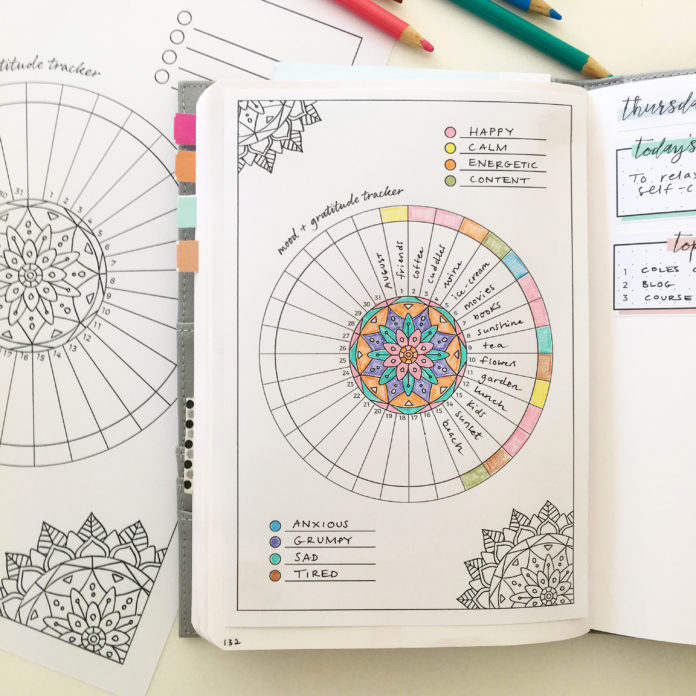 titude tracker
30
31
1
2
3
4
5
6
7
8
9
10
11
12
13
14
15
16
17
HAPPY
CALM
ENERGETIC
CONTENT
mood + gratitude tracker
August
friends
coffee
cuddles
wine
ice-cream
movies
books
sunshine
tea
flowers
garden
lunch
kids
sunset
beach
1
2
3
4
5
6
7
8
9
10
11
12
13
14
15
16
17
18
19
20
21
22
23
24
25
26
27
28
29
30
31
ANXIOUS
GRUMPY
SAD
TIRED
132
thursda
todays
TO RELAX
SELF-C
top
1 COLES
2 BLOG
3 COURSE